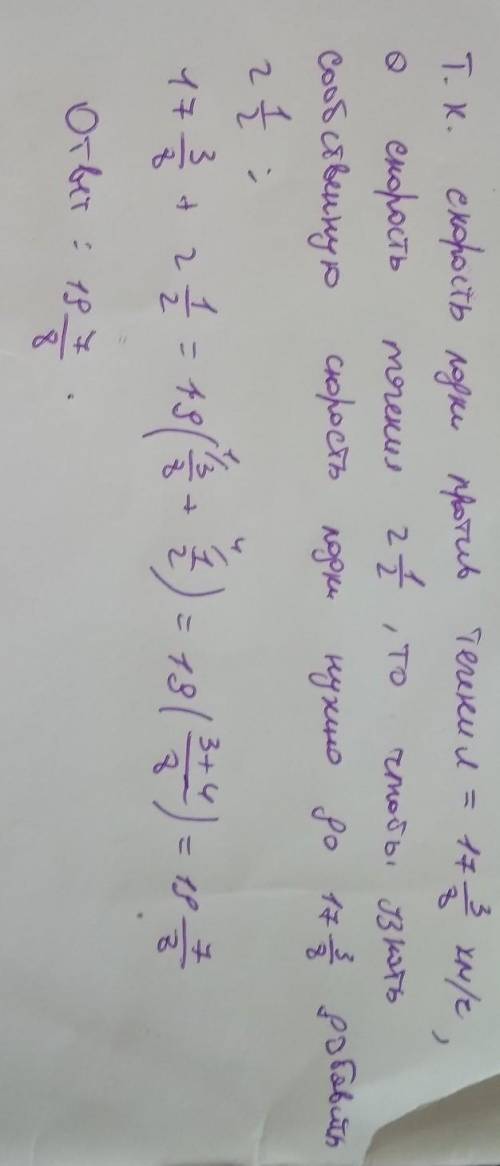 Т.к. скорость лодки против течения = 17 3/8 км/ч,
а скорость течения 2 1/2, то чтобы узнать
собственную скорость лодки нужно до 17 3/8 добавить
2 1/2 :
17 3/8 + 2 1/2 = 19(3/8 + 1/2) = 19(3+4/8) = 19 7/8
Ответ : 19 7/8.